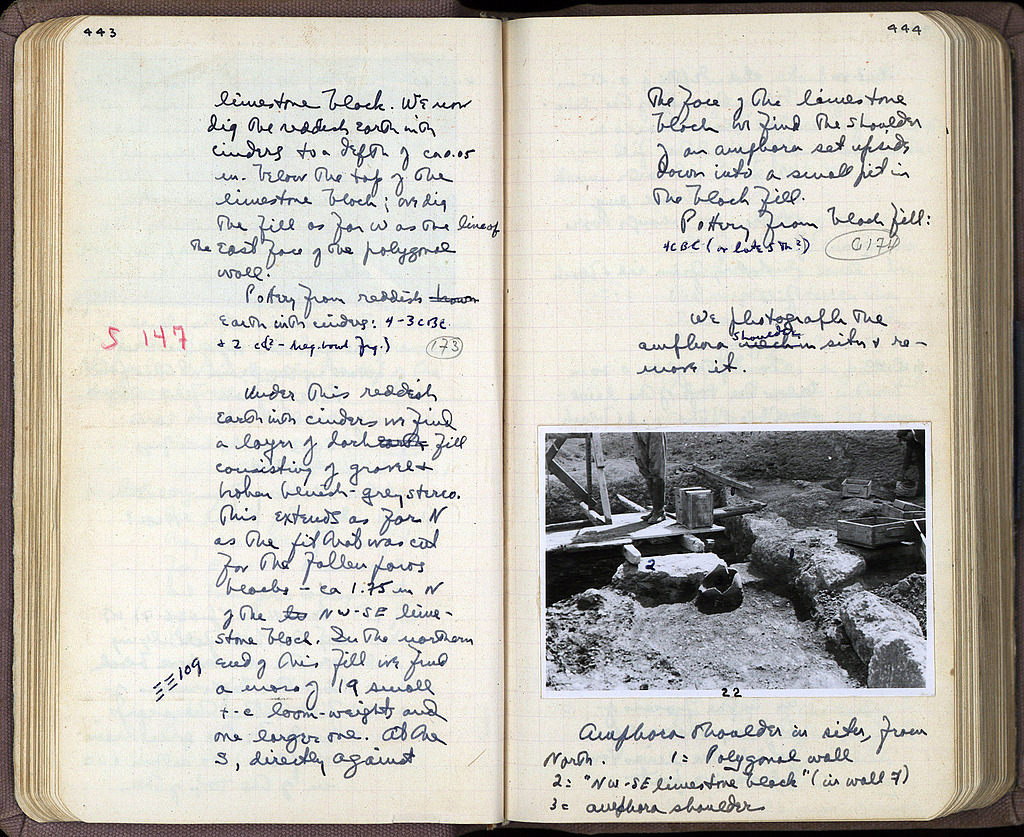 443
limestone block. We now
dig the reddish earth with
cinders to a depth of ca 0.05
m. below the top of the
limestone block; we dig
the fill as far W as the line of
the East face of the polygonal
wall.
Pottery from reddish brown
earth with cinders: 4-3cBC.
S 147
173
Under this reddish
earth with cinders we find
a layer of dark earth fill
consisting of gravel +
broken -grey stereo.
This extends as far N
as the pit that was cut
for the fallen poros
blocks - ca 1.75 m N
of the NW-SE lime-
stone block. In the northern
end of this fill we find
ΞΞ 109
a mass of 19 small
t-c loom-weights and
one larger one. At the
S, directly against
444
the face of the limestone
block we find the shoulder
of an amphora set upside
down into a small pit in
the black fill.
Pottery from black fill:
4cBC (or late 5th?)
174
We photograph the
shoulder
amphora neck in situ & re-
move it.
1
2
22
Amphora shoulder in situ, from
North. 1 = Polygonal wall
2 = "NW-SE limestone block" (in wall 7)
3 = amphora shoulder